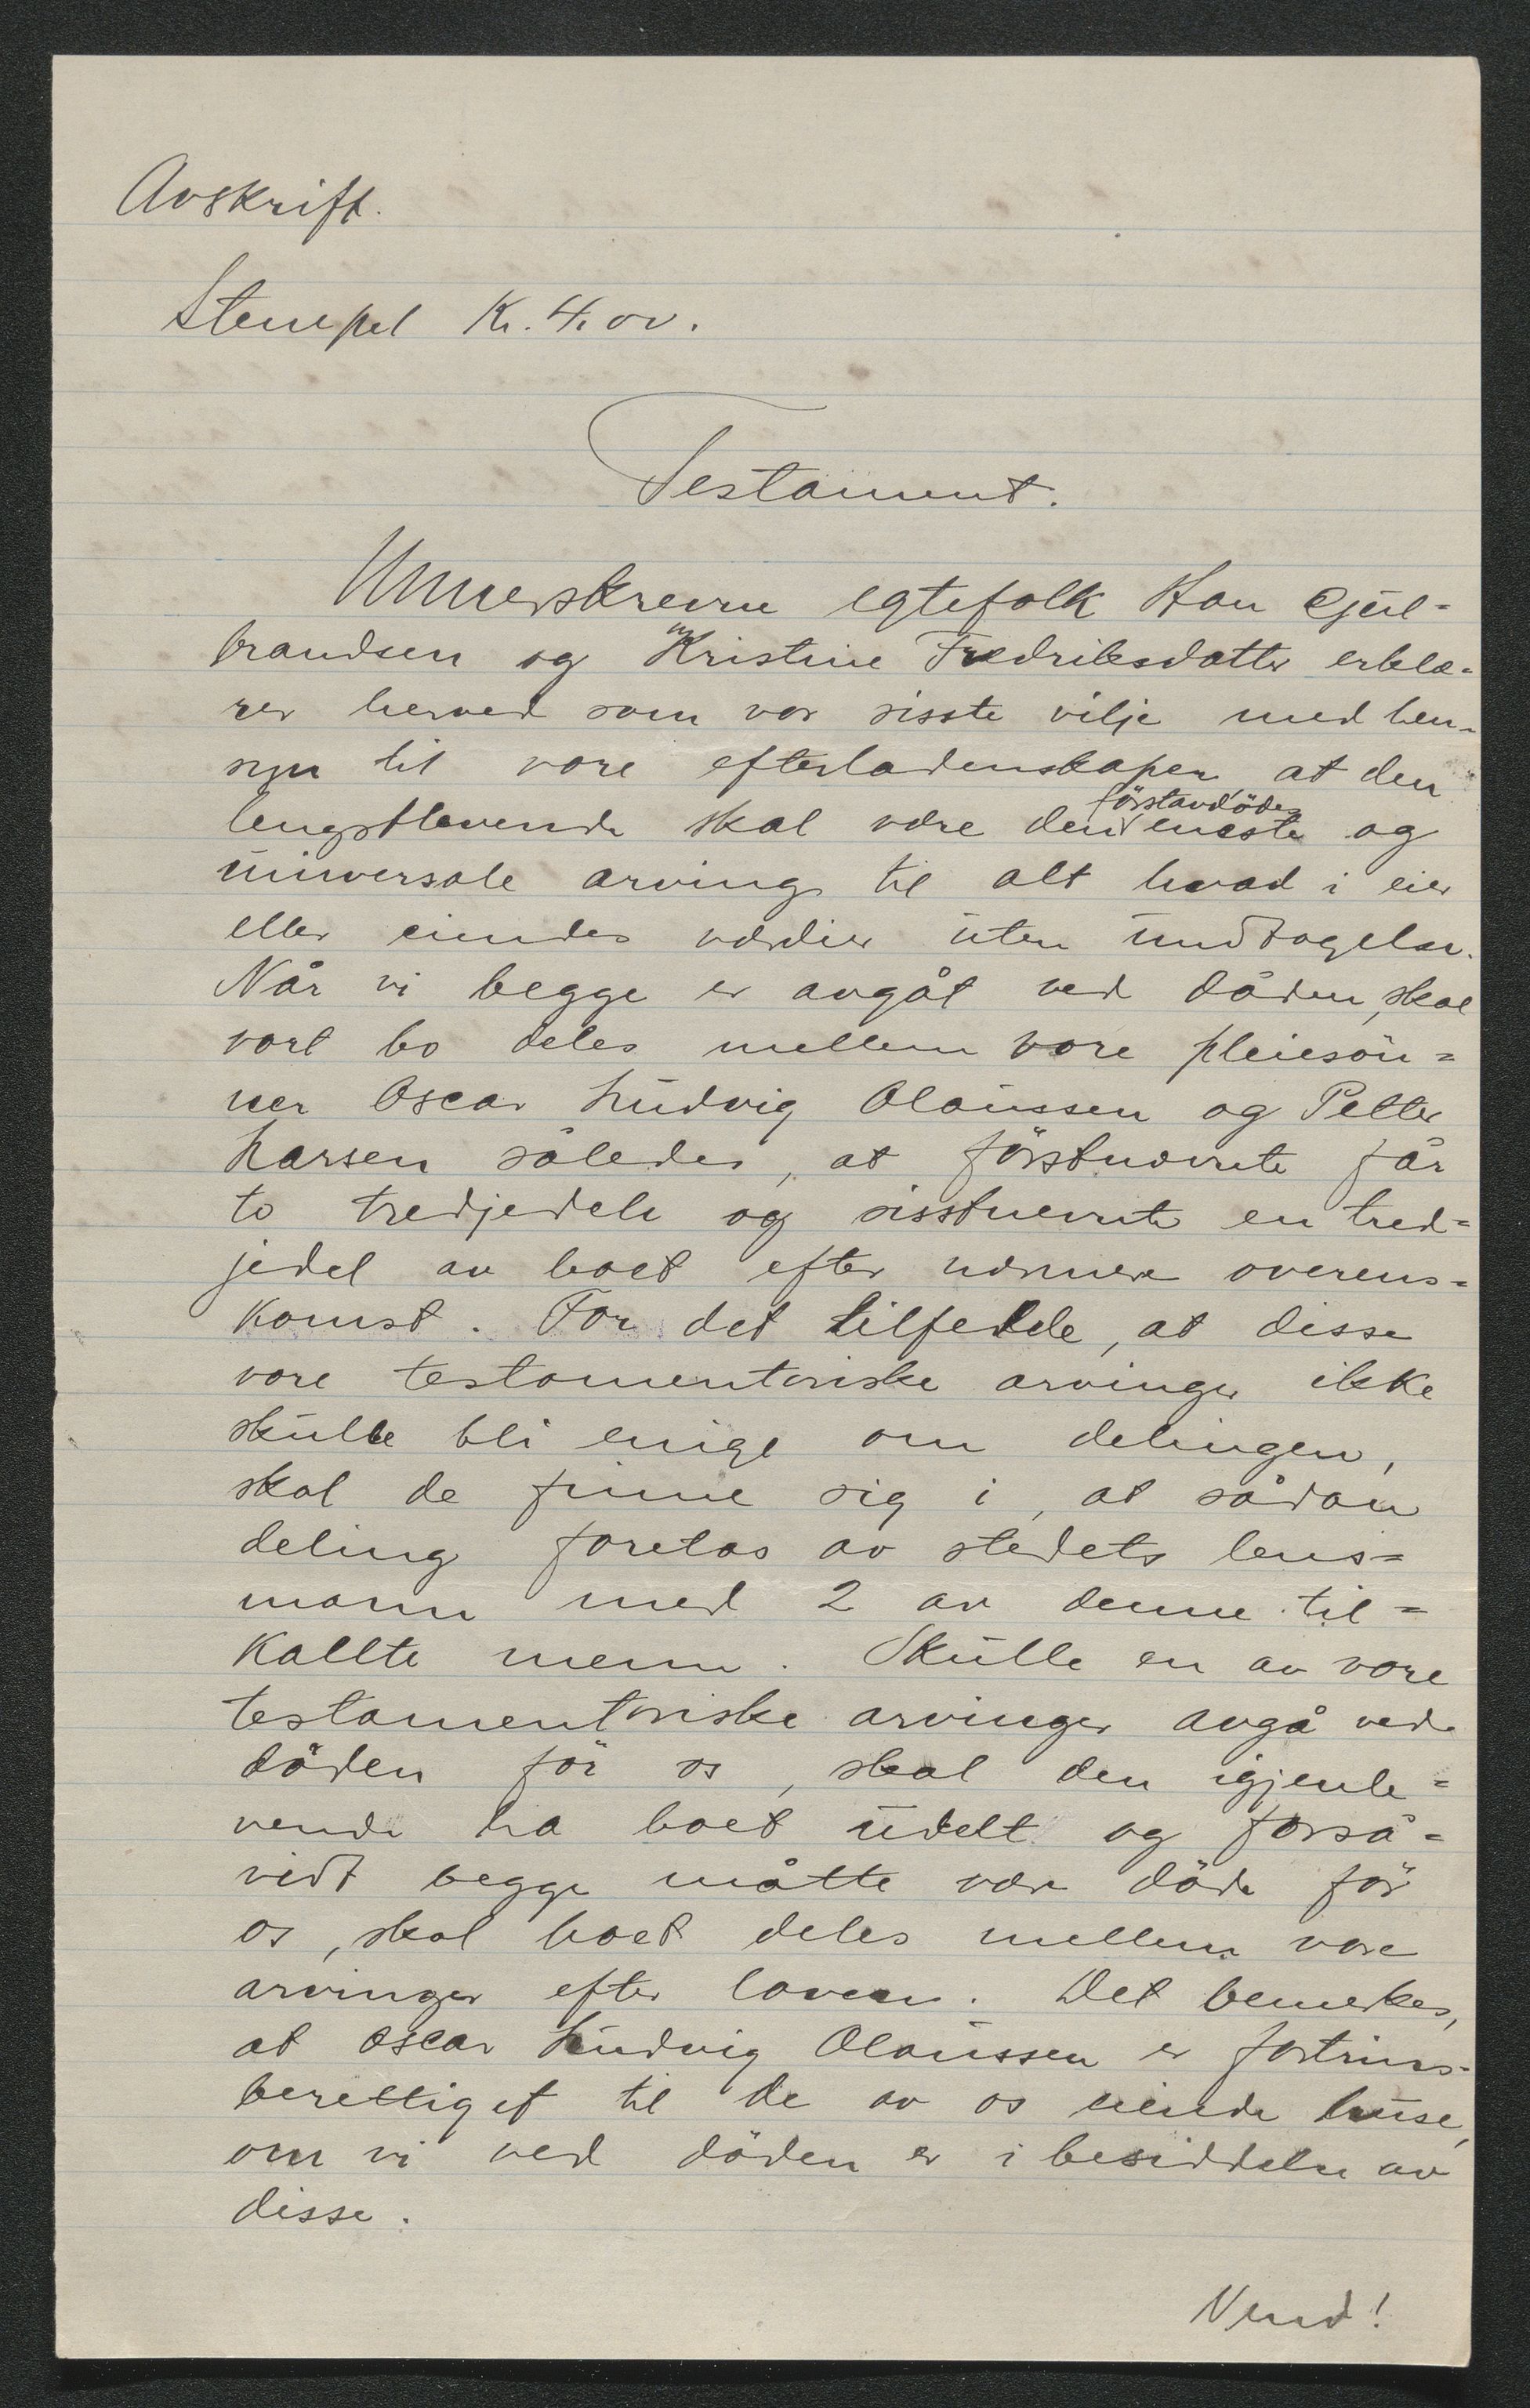 Avskrift.
Stempel Kr. 4.00.
Testament.
Unnerskrevne egtefolk Han Gjul=
brandsen og Kristine Fredriksdatter erklæ=
rer herved som vor sisste vilje med hen=
syn til vore efterladenskaper at den
lengstlevende skal være den förstavdödes eneste og
universale arving til alt hvad i eier
eller eiendes værdier uten undtagelse.
Når vi begge er avgåt ved döden, skal
vort bo deles mellem vore pleiesön=
ner Oscar Ludvig Olaussen og Petter
Larsen således, at förstnævnte får
to tredjedele og sisstnevnte en tred=
jedel av boet efter nærmere overens=
komst. For det tilfelde, at disse
vore testamentariske arvinger ikke
skulle bli enige om delingen,
skal de finne sig i, at sådan
deling foretas av stedets lens=
mann med 2 av denne til=
kallte menn. Skulle en av vore
testamentariske arvinger avgå ved
döden för os, skal den igjenle=
vende ha boet udelt og forså=
vidt begge måtte være döde för
os, skal boet deles mellem vore
arvinger efter loven. Det bemerkes,
at Oscar Ludvig Olaussen er fortrins=
berettiget til de av os eiende huse,
om vi ved döden er i besiddelse av
disse.
Vend!